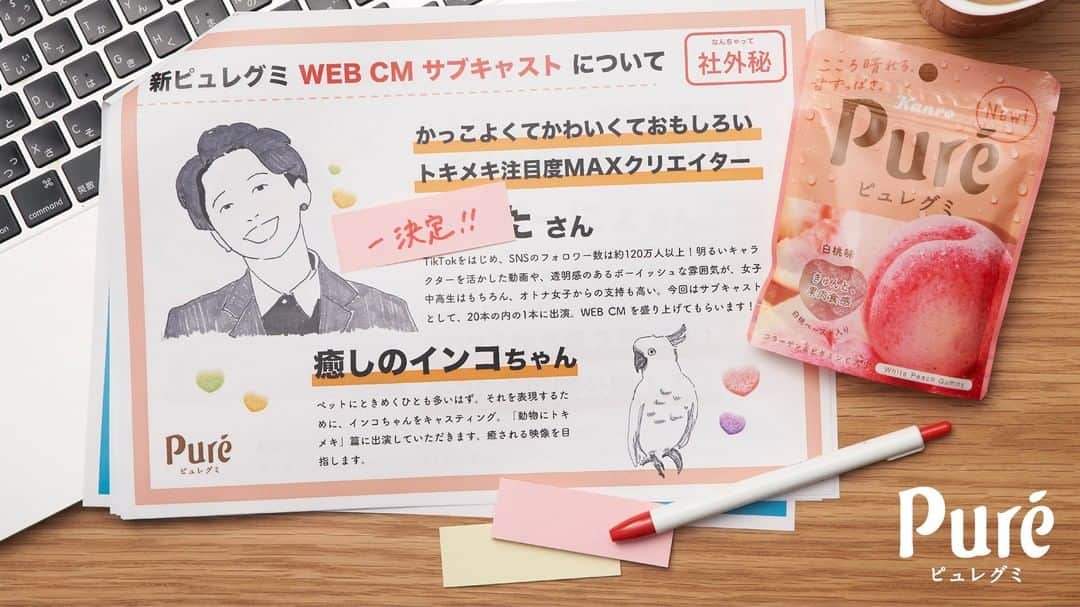 新ピュレグミ WEB CM サブキャスト について
なんちゃって
社外秘
かっこよくてかわいくておもしろい
トキメキ注目度MAXクリエイター
決定!!
さん
TikTokをはじめ、SNSのフォロワー数は約120万人以上！明るいキャラ
クターを活かした動画や、透明感のあるボーイッシュな雰囲気が、女子
中高生はもちろん、オトナ女子からの支持も高い。今回はサブキャスト
として、20本の内の1本に出演。WEB CM を盛り上げてもらいます！
癒しのインコちゃん
ペットにときめくひとも多いはず。それを表現するた
めに、インコちゃんをキャスティング。「動物にトキ
メキ」篇に出演していただきます。癒される映像を目
指します。
Puré
ピュレグミ
こころ晴れる、
甘ずっぱさ。
Kanro
New!
Puré
ピュレグミ
白桃味
きゅんと、
果肉食感
白桃ペースト入り
コラーゲン&ビタミンC
White Peach Gummy
Puré
ピュレグミ
command
英数